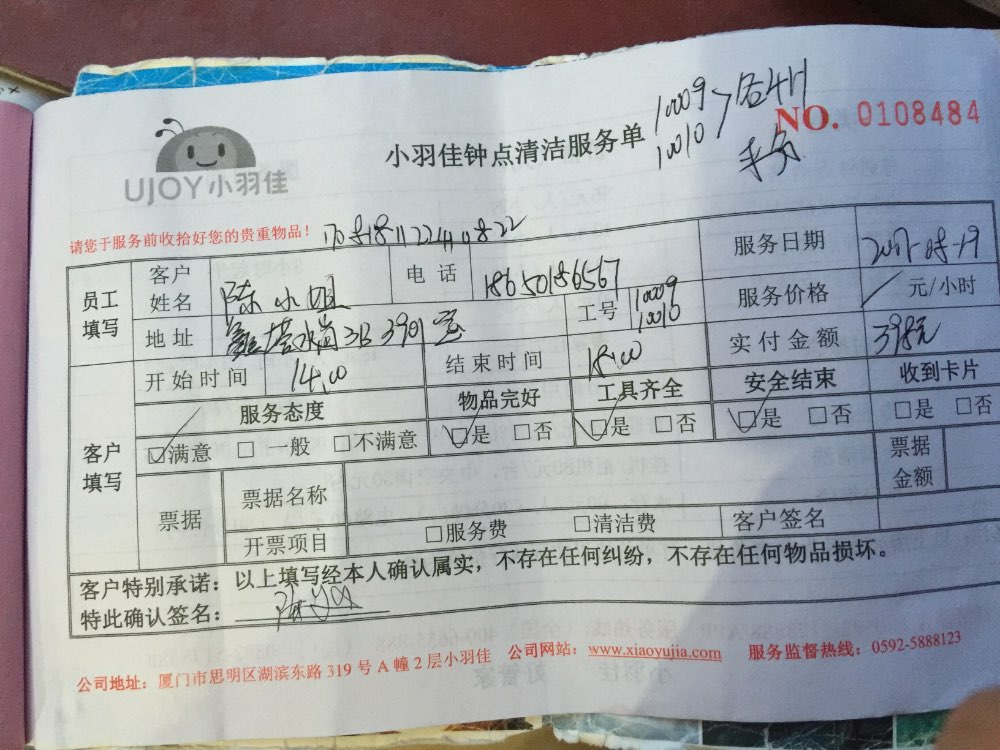 10009
10010
各4H
NO. 0108484
UJOY小羽佳
小羽佳钟点清洁服务单
请您于服务前收拾好您的贵重物品！
员工填写 客户姓名 陈小姐 电话 18650186567 服务日期 2017-08-19
地址 3B 3901室 工号 10009 10010 服务价格 元/小时
开始时间 14:00 结束时间 18:00 实付金额 398元
客户填写 服务态度 物品完好 工具齐全 安全结束 收到卡片
☑满意 □一般 □不满意 ☑是 □否 ☑是 □否 ☑是 □否 □是 □否
票据 票据名称 票据金额
开票项目 □服务费 □清洁费 客户签名
客户特别承诺：以上填写经本人确认属实，不存在任何纠纷，不存在任何物品损坏。
特此确认签名：
公司地址：厦门市思明区湖滨东路 319 号 A 幢 2 层小羽佳 公司网站：www.xiaoyujia.com 服务监督热线：0592-5888123